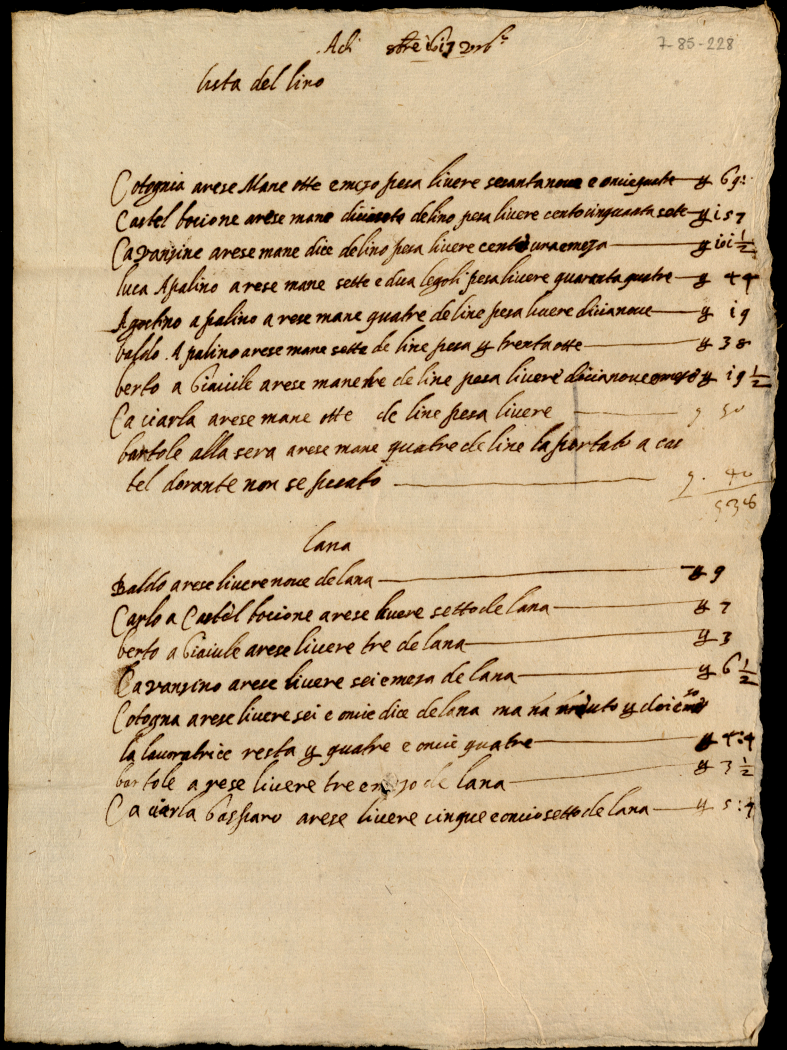 Adi 1617
7-85-228
lista del lino
Cotognia arese Mane otte e mezo pesa livere sesantanove e oncie quatr 69:
Castel bocione arese mane diciesoto de lino pesa livere centocinquanta sete 157
Cavansine arese mane dice de lino pesa livere cento una e meza 101 1/2
luca Apalino arese mane sette e dua legoli pesa livere quaranta quatre 44
Agostino apalino arese mane quatre de line pesa livere dicianove 19
baldo Apalino arese mane sette de line pesa trenta otte 38
berto a arese mane tre de line pesa livere dicianove 19 1/2
Ca ciarla arese mane otte de line pesa livere 50
bartole alla sera arese mane quatre de line la portato a cas
tel dorante non se pesato 40
538
lana
Baldo arese livere nove de lana 9
Carlo a Castel bocione arese livere sette de lana 7
berto a arese livere tre de lana 3
Cavansino arese livere sei e meza de lana 6 1/2
Cotogna arese livere sei e oncie dice de lana ma na
la lavoratrice resta quatre e oncie quatre 4:4
bartole arese livere tre de lana 3 1/2
Ca ciarla Gasparo arese livere cinque e oncie sette de lana 5:7